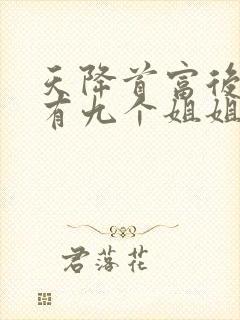 天降首富後
有九个姐姐
君落花